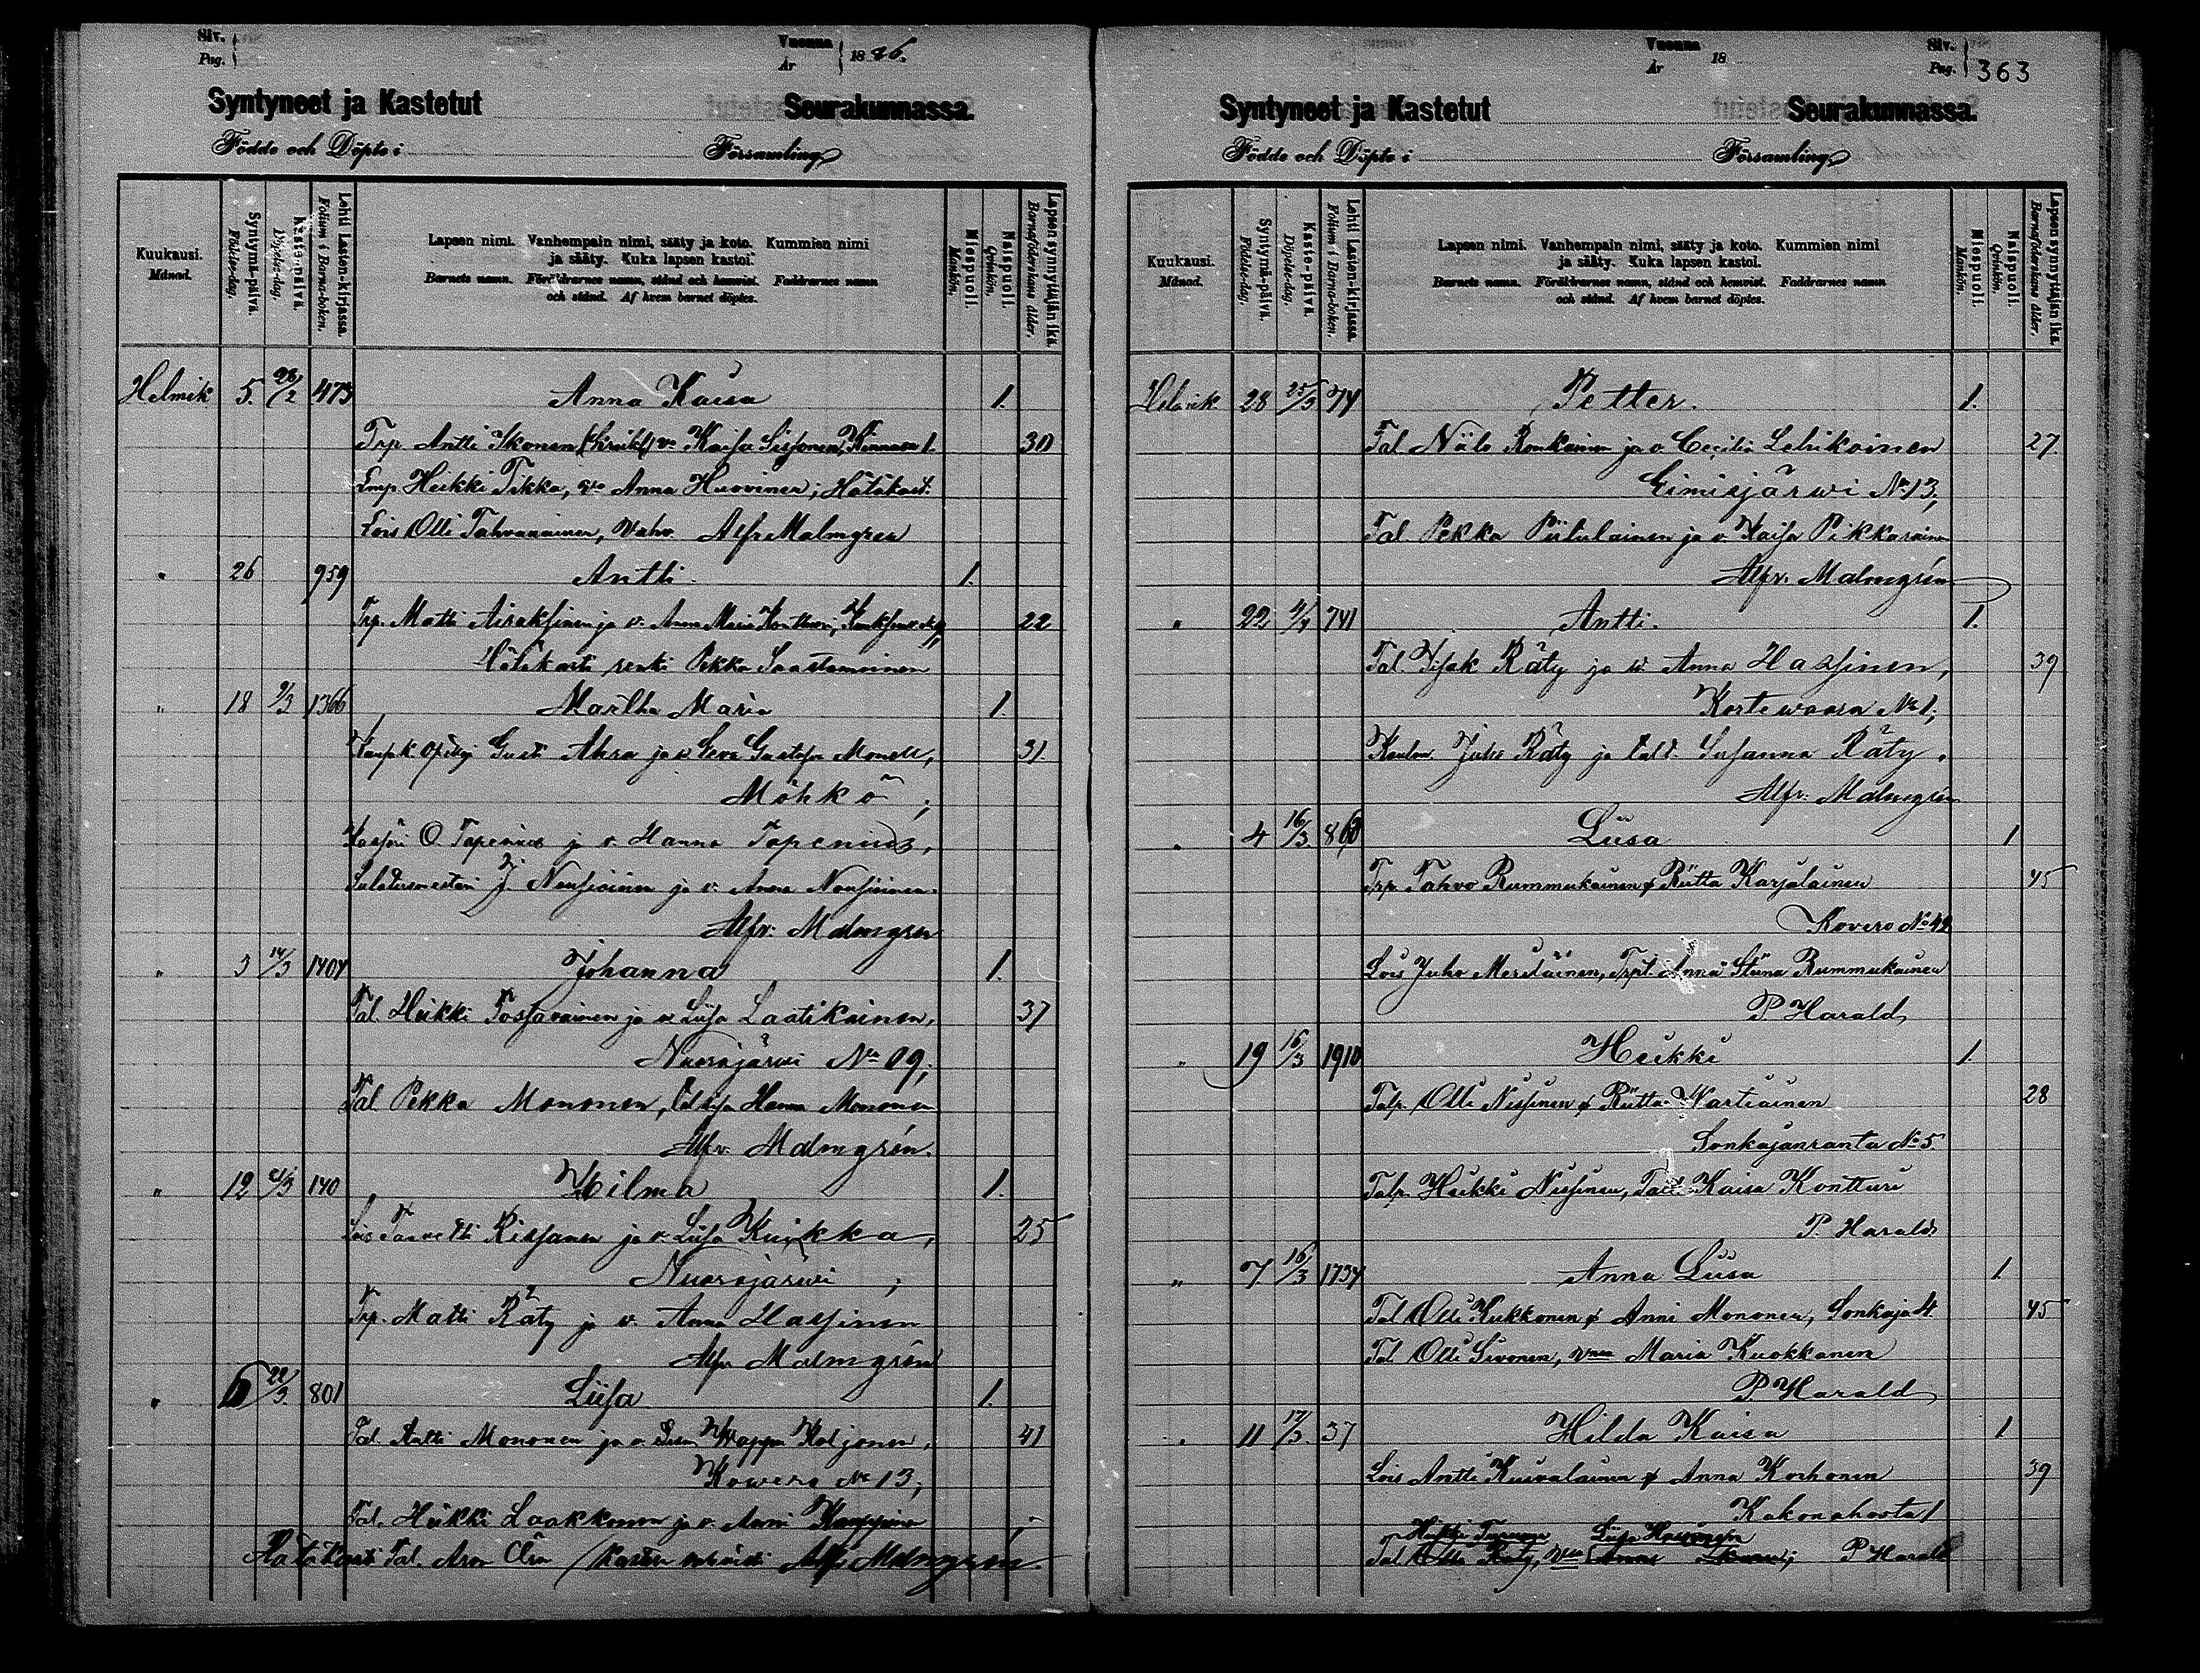 Siv. Pag.
Vuonna År 1886.
Syntyneet ja Kastetut Seurakunnassa.
Födde och Döpte i Församling
Kuukausi. Månad.
Syntymä-päivä. Födelse-dag.
Kaste-päivä. Döpelse-dag.
Lehti Lasten-kirjassa. Folium i Barna-boken.
Lapsen nimi. Vanhempain nimi, sääty ja koto. Kummien nimi
ja sääty. Kuka lapsen kastoi.
Barnets namn. Föräldrarnes namn, stånd och hemvist. Faddrarnes namn
och stånd. Af hvem barnet döptes.
Miespuoli. Mankön.
Naispuoli. Qvinkön.
Lapsen synnyttäjän ikä. Barnaföderskans ålder.
Helmik. 5. 28/2 473 Anna Kaisa 1.
Trp. Antti Ikonen vo Kaisa Sissonen, 30
Heikki Tikka, vo Anna Huovinen; Hätäkast.
Lois Olli Tahvanainen, vahv. Alfr Malmgren
" 26 959 Antti. 1.
Trp. Matti Airaksinen ja v. Anna Maria Kontturi, 22
Hätäkasti renki Pekka Saastamoinen
" 18 9/3 1366 Martha Maria 1.
Gusti Ahra ja v. Eeva Gustafva Monell, 31.
Möhkö;
O. Tapenius ja v. Hanna Tapenius,
J. Nousiainen ja v. Anna Nousiainen.
Alfr. Malmgren
" 3 14/3 1404 Johanna 1.
Tal. Heikki Tossavainen ja v. Liisa Laatikainen, 37
Nuorajärwi No 09;
Tal. Pekka Mononen, Hanna Mononen
Alfr. Malmgrén.
" 12 21/3 140 Hilma 1.
Lois Taavetti Rissanen ja v. Liisa Kuikka, 25
Nuorajärwi;
Trp. Matti Räty ja v. Anna Hassinen
Alfr Malmgrén
" 6 22/3. 801 Liisa 1.
Tal. Antti Mononen ja v. Wappu Koljonen, 41
Kowero No 13;
Tal. Heikki Laakkonen ja v. Anni Kauppinen
Hätäkasti Tal. Alfr Malmgrén
Vuonna År 18
Siv. Pag. 363
Syntyneet ja Kastetut Seurakunnassa.
Födde och Döpte i Församling
Kuukausi. Månad.
Syntymä-päivä. Födelse-dag.
Kaste-päivä. Döpelse-dag.
Lehti Lasten-kirjassa. Folium i Barna-boken.
Lapsen nimi. Vanhempain nimi, sääty ja koto. Kummien nimi
ja sääty. Kuka lapsen kastoi.
Barnets namn. Föräldrarnes namn, stånd och hemvist. Faddrarnes namn
och stånd. Af hvem barnet döptes.
Miespuoli. Mankön.
Naispuoli. Qvinkön.
Lapsen synnyttäjän ikä. Barnaföderskans ålder.
Helmik. 28 25/3 74 Petter. 1.
Tal Niilo Ronkainen ja v. Cecilia Lehikoinen 27.
Eimisjärwi No 13;
Tal Pekka Piitulainen ja v. Kaisa Pikkarainen
Alfr. Malmgrén
" 22 4/4 741 Antti. 1.
Tal. Isak Räty ja v. Anna Hassinen, 39
Kortewaara No 1;
Juho Räty ja Susanna Räty.
Alfr. Malmgrén
" 4 16/3 860 Liisa 1
Trp. Tahvo Rummukainen o Riitta Karjalainen 45
Kovero No 42
Lois Juho Meriläinen, Trpt. Anna Stiina Rummukainen
P. Harald
" 19 16/3 1910 Heikki 1.
Talp. Olli Nissinen o Riitta Wartiainen 28
Sonkajanranta No 5.
Talp. Heikki Nissinen, Kaisa Kontturi
P. Harald
" 7 16/3 1734 Anna Liisa 1.
Tal Olli Kukkonen o Anni Mononen, Sonkaja 4. 45
Tal Olli Sivonen, vmo Maria Kuokkanen
P. Harald
" 11 17/3. 37 Hilda Kaisa 1
Lois Antti Kuivalainen o Anna Korhonen 39
Kakonahosta 1
Heikki Turunen Liisa
Tal Olli Räty, P Harald